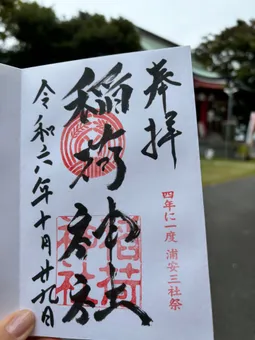 奉拝
四年に一度 浦安三社祭
稲荷神社
稲荷神社
令和六年十月廿九日